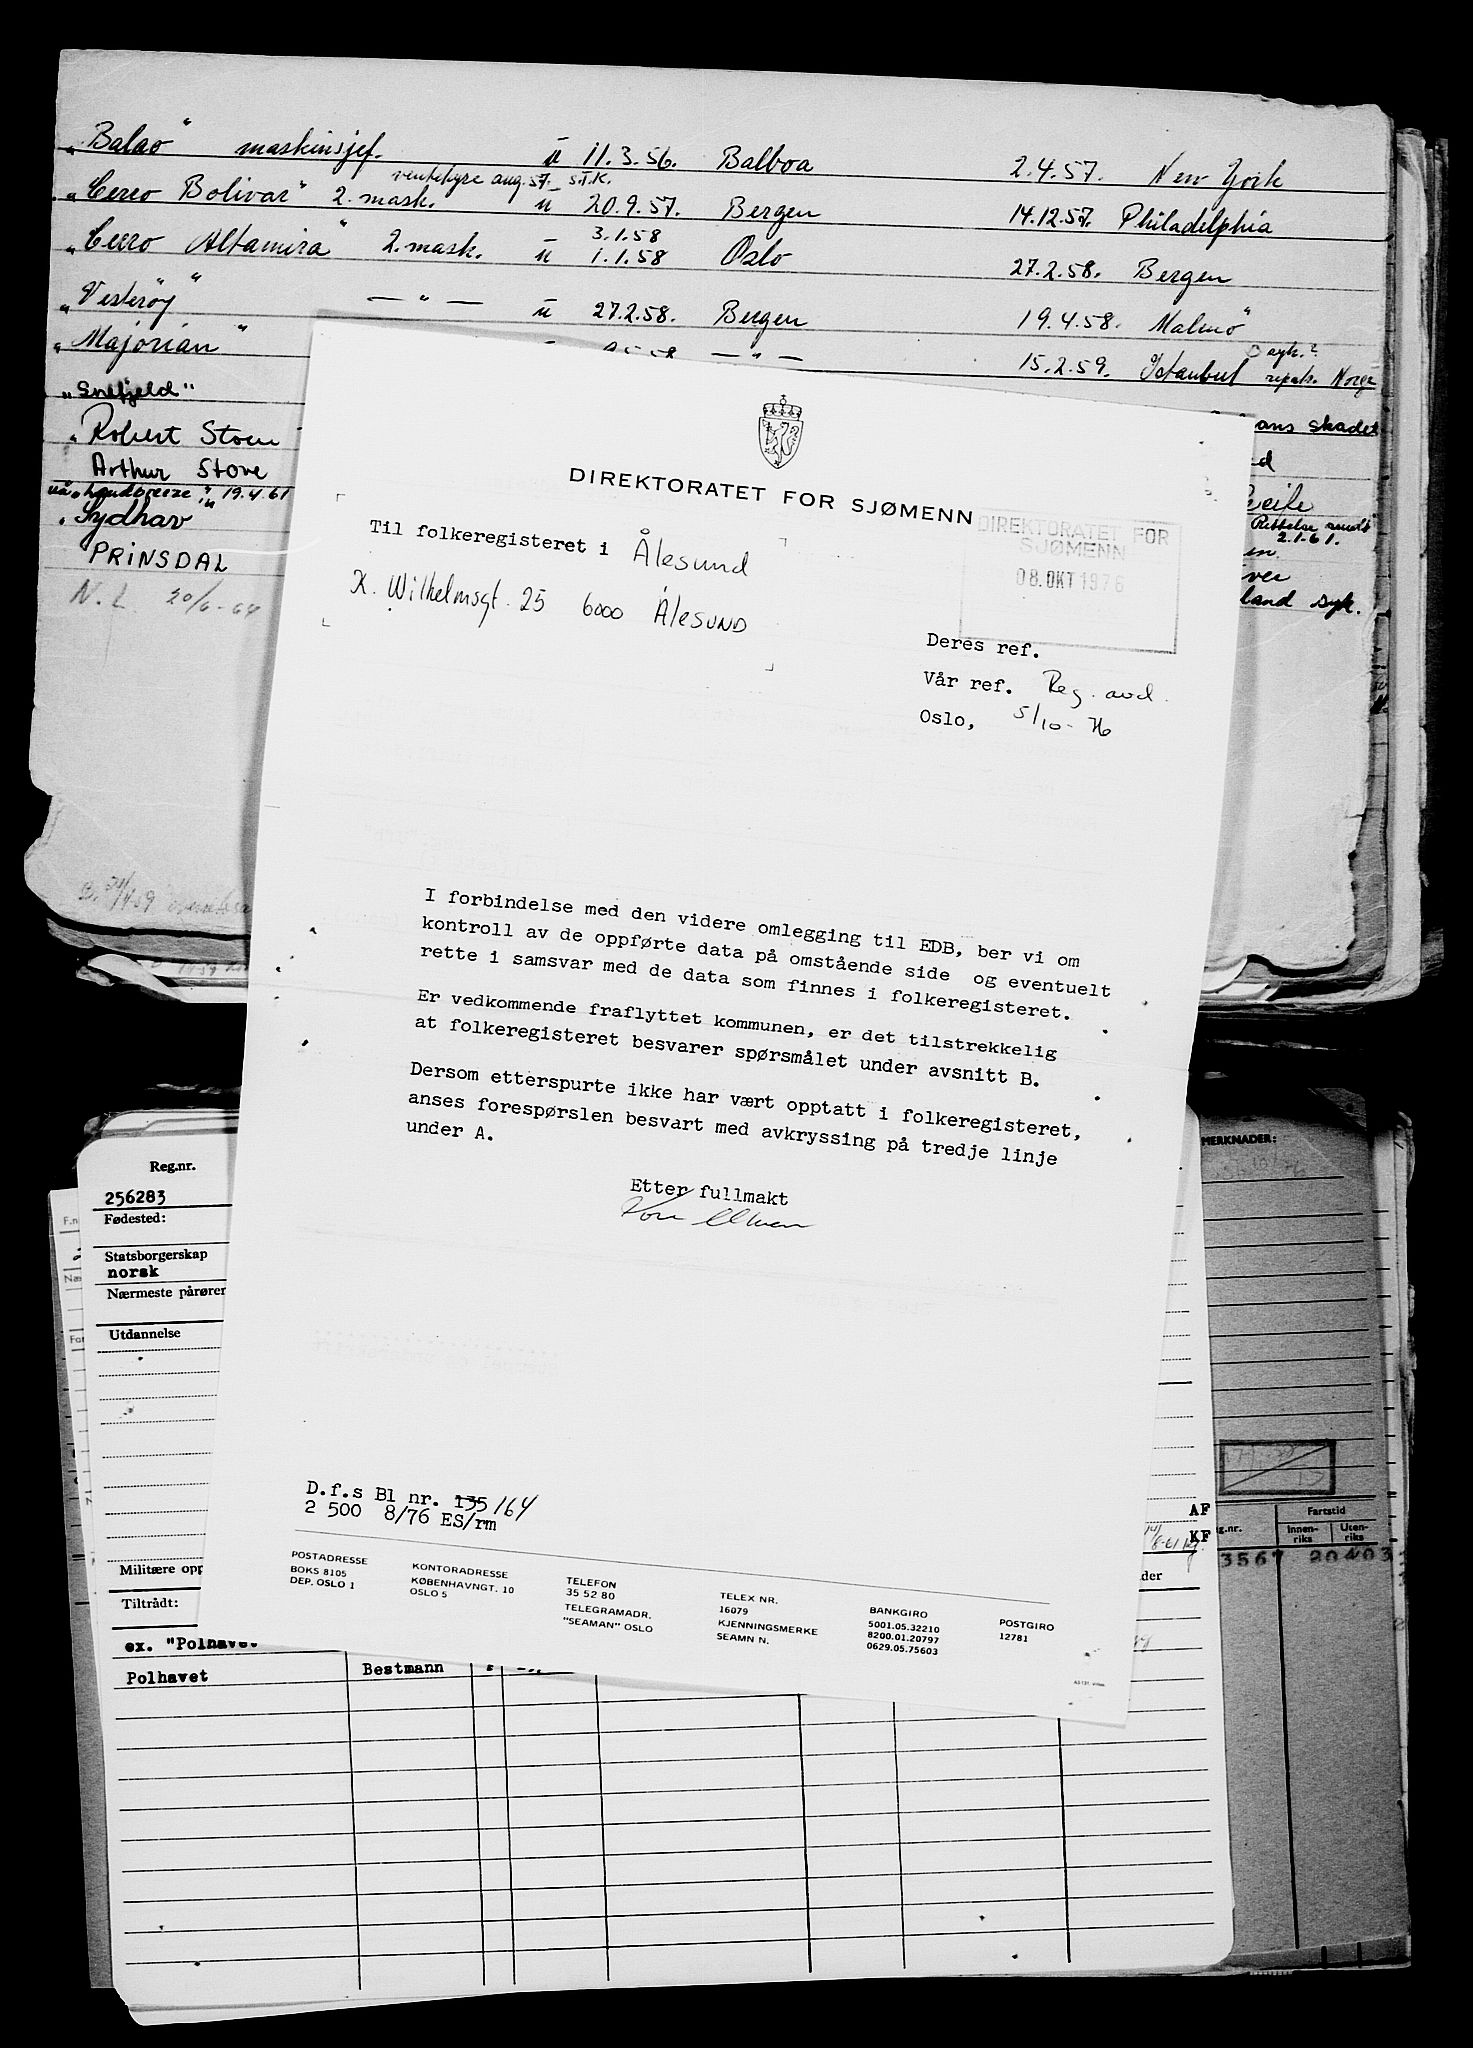 "Balao" maskinsjef. u 11.3.56. Balboa 2.4.57. New York
ventehyre aug. 57. S.T.K.
"Cerro Bolivar" 2. mask. u 20.9.57. Bergen 14.12.57. Philadelphia
3.1.58
"Cerro Altamira" 2. mask. u 1.1.58 Oslo 27.2.58. Bergen
"Vesterøy" — " — u 27.2.58. Bergen 19.4.58. Malmö
"Majorian" — " — 15.2.59. Istanbul syk.? repatr. Norge
"Snefjeld" skadet
Robert Stove
Arthur Stove
19.4.61
Sydhav 2.1.61.
PRINSDAL
land syk.
N.L. 20/6-64
DIREKTORATET FOR SJØMENN
DIREKTORATET FOR
SJØMENN
08. OKT 1976
Til folkeregisteret i Ålesund
K. Wilhelmsgt. 25 6000 ÅLESUND
Deres ref.
Vår ref. Reg. avd.
Oslo, 5/10-76
I forbindelse med den videre omlegging til EDB, ber vi om
kontroll av de oppførte data på omstående side og eventuelt
rette i samsvar med de data som finnes i folkeregisteret.
Er vedkommende fraflyttet kommunen, er det tilstrekkelig
at folkeregisteret besvarer spørsmålet under avsnitt B.
Dersom etterspurte ikke har vært opptatt i folkeregisteret,
anses forespørslen besvart med avkryssing på tredje linje
under A.
Etter fullmakt
D.f.s Bl nr. 135 164
2 500 8/76 ES/rm
POSTADRESSE
BOKS 8105
DEP. OSLO 1
KONTORADRESSE
KØBENHAVNGT. 10
OSLO 5
TELEFON
35 52 80
TELEGRAMADR.
"SEAMAN" OSLO
TELEX NR.
16079
KJENNINGSMERKE
SEAMN N.
BANKGIRO
5001.05.32210
8200.01.20797
0629.05.75603
POSTGIRO
12781
Reg.nr.
256283
Fødested:
Statsborgerskap
norsk
Nærmeste pårører
Utdannelse
Militære opp
Tiltrådt:
ex. "Polhavet
Polhavet Bestmann
MERKNADER:
AF
KF
g.nr.
Fartstid
Innen-
riks
Uten-
riks
3567 20403
der